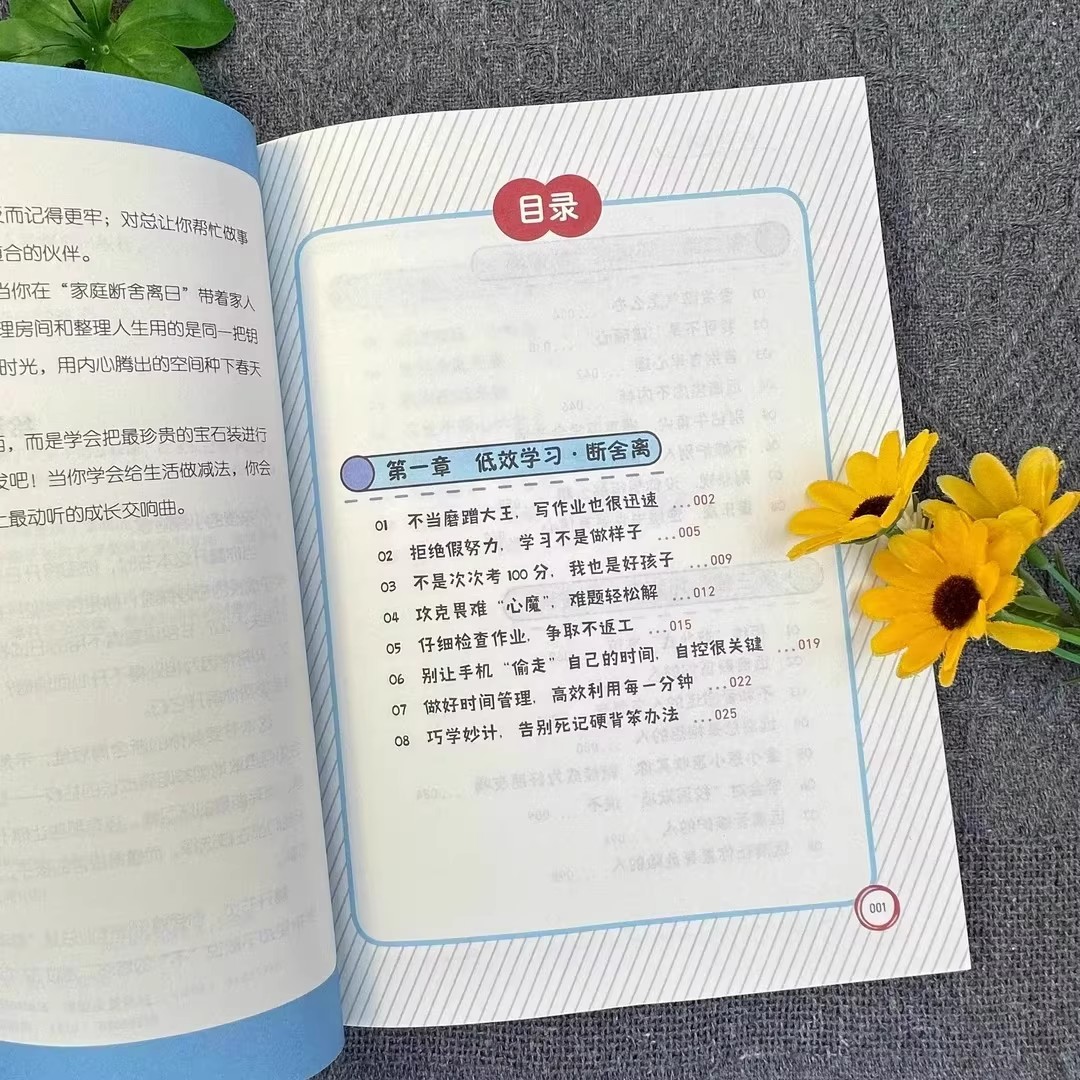 而记得更牢；对总让你帮忙做事
合的伙伴。
当你在“家庭断舍离日”带着家人
理房间和整理人生用的是同一把钥
时光，用内心腾出的空间种下春天
，而是学会把最珍贵的宝石装进行
发吧！当你学会给生活做减法，你会
上最动听的成长交响曲。
目录
第一章 低效学习·断舍离
01 不当磨蹭大王，写作业也很迅速 ...002
02 拒绝假努力，学习不是做样子 ...005
03 不是次次考100分，我也是好孩子 ...009
04 攻克畏难“心魔”，难题轻松解 ...012
05 仔细检查作业，争取不返工 ...015
06 别让手机“偷走”自己的时间，自控很关键 ...019
07 做好时间管理，高效利用每一分钟 ...022
08 巧学妙计，告别死记硬背笨办法 ...025
001